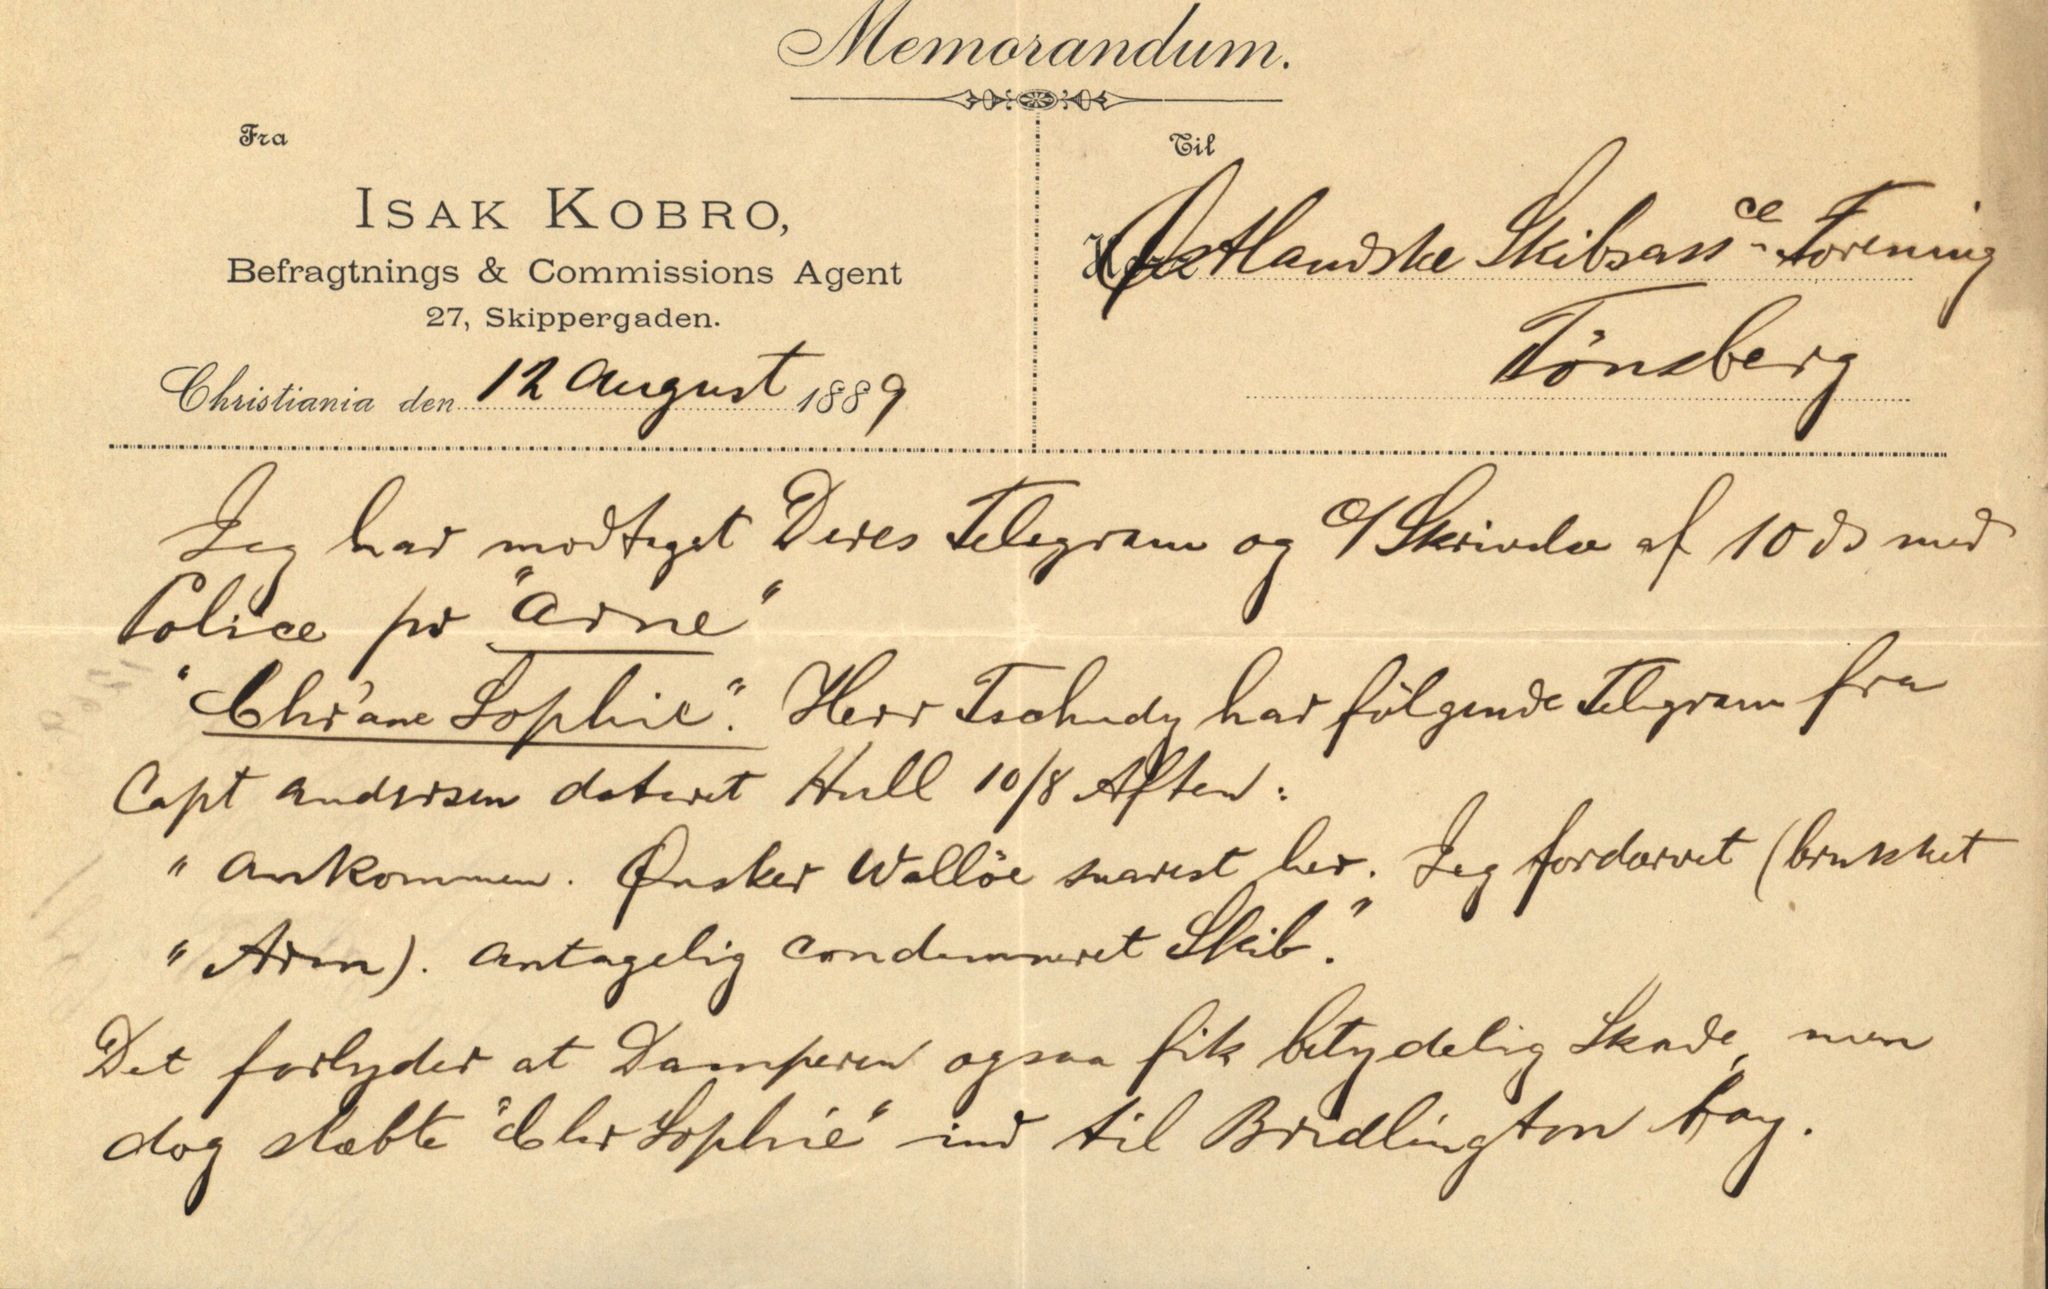 Memorandum.
Fra
Til
ISAK KOBRO,
Befragtnings & Commissions Agent
27, Skippergaden.
Christiania den 12 August 1889
Østlandske Skibsass ce Forening
Tönsberg
Jeg har modtaget Deres Telegram og Skrivelse af 10 ds med
Police pr "Arne"
"Chr'ane Sophie". Herr Tschudy har følgende Telegram fra
Capt Andersen dateret Hull 10/8 Aften:
" Ankommen. Ønsker Wallöe snarest her. Jeg fordærvet (brukket
" Arm). Antagelig condemneret Skib."
Det forlyder at Damperen ogsaa fik betydelig Skade, men
dog slæbte "Chr Sophie" ind til Bridlington bay.